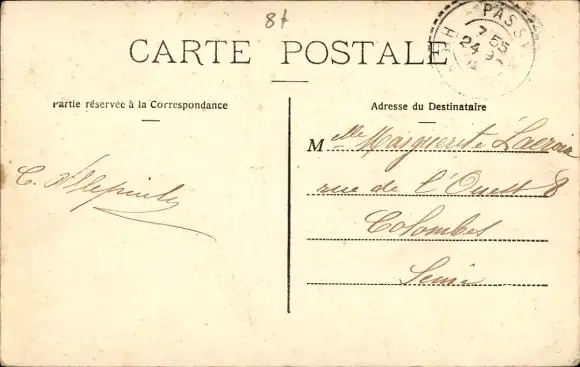 87
CARTE POSTALE
PASSY
7 55
24
Partie réservée à la Correspondance
Adresse du Destinataire
Melle Marguerite Lacroix
rue de l'Ouest 8
Colombes
Seine
C.